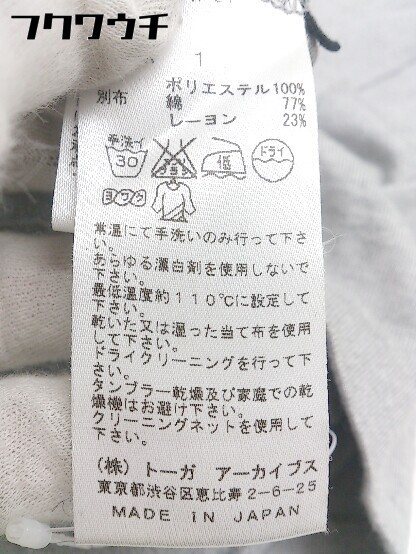 フクワウチ
1
ポリエステル100%
別布 綿 77%
レーヨン 23%
手洗イ
30 低 ドライ
ヨワク
常温にて手洗いのみ行って下さ
い。
あらゆる漂白剤を使用しないで
下さい。
最低温度約110℃に設定して
下さい。
乾いた又は湿った当て布を使用
して下さい。
ドライクリーニングを行って下
さい。
タンブラー乾燥及び家庭での乾
燥機はお避け下さい。
クリーニングネットを使用して
下さい。
(株) トーガ アーカイブス
東京都渋谷区恵比寿2-6-25
MADE IN JAPAN